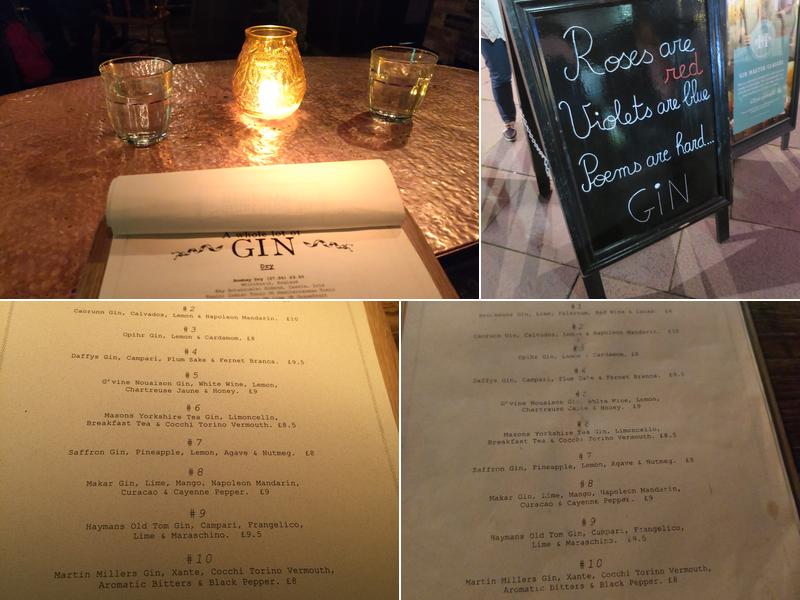 A whole lot of
GIN
Dry
Bombay Dry
England
Roses are
red
Violets are blue
Poems are hard...
GiN
GIN MASTER CLASSES
#2
Caorunn Gin, Calvados, Lemon & Napoleon Mandarin. £10
#3
Opihr Gin, Lemon & Cardamom, £8
#4
Daffys Gin, Campari, Plum Sake & Fernet Branca. £9.5
#5
G'vine Nouaison Gin, White Wine, Lemon,
Chartreuse Jaune & Honey. £9
#6
Masons Yorkshire Tea Gin, Limoncello,
Breakfast Tea & Cocchi Torino Vermouth. £8.5
#7
Saffron Gin, Pineapple, Lemon, Agave & Nutmeg. £8
#8
Makar Gin, Lime, Mango, Napoleon Mandarin,
Curacao & Cayenne Pepper. £9
#9
Haymans Old Tom Gin, Campari, Frangelico,
Lime & Maraschino. £9.5
#10
Martin Millers Gin, Xante, Cocchi Torino Vermouth,
Aromatic Bitters & Black Pepper. £8
#1
Brockmans Gin, Lime, Falernum, Red Wine &
#2
Caorunn Gin, Calvados, Lemon & Napoleon Mandarin. £10
#3
Opihr Gin, Lemon & Cardamom, £8
#4
Daffys Gin, Campari, Plum Sake & Fernet Branca. £9.5
#5
G'vine Nouaison Gin, White Wine, Lemon,
Chartreuse Jaune & Honey. £9
#6
Masons Yorkshire Tea Gin, Limoncello,
Breakfast Tea & Cocchi Torino Vermouth. £8.5
#7
Saffron Gin, Pineapple, Lemon, Agave & Nutmeg. £8
#8
Makar Gin, Lime, Mango, Napoleon Mandarin,
Curacao & Cayenne Pepper. £9
#9
Haymans Old Tom Gin, Campari, Frangelico,
Lime & Maraschino. £9.5
#10
Martin Millers Gin, Xante, Cocchi Torino Vermouth,
Aromatic Bitters & Black Pepper. £8